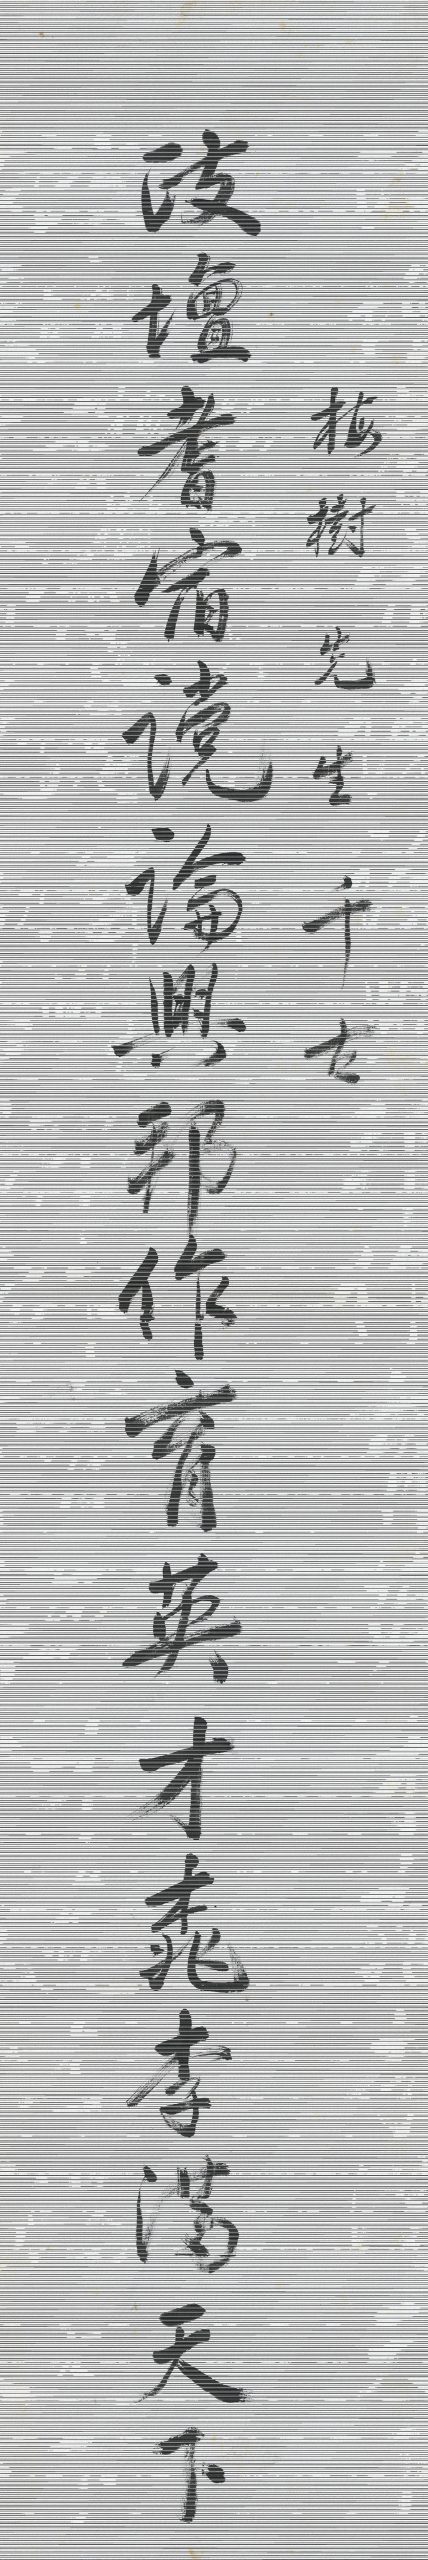 梅樹先生千古
政壇耆宿讜論興邦作育英才桃李滿天下